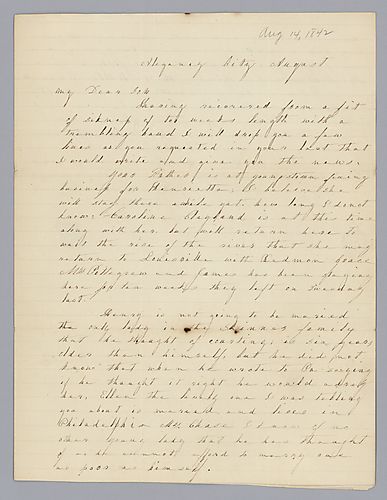 Aug 14, 1842
Alegancy City August
My Dear Son
Having recovered from a fit
of sickness of two weeks length with a
trembling hand I will drop you a few
lines as you requested in your last that
I would write and give you the news.
Your Father is at youngstown fixing
business for Hennrietta, I believe she
will stay there awhile yet, how long I donot
know. Caroline Clegland is at this time
along with her, but will return here to
wait the rise of the river that she may
return to Louisville with Redmon Grace
Mrs Pettegrew and James has been staying
here for ten weeks they left on Tuesday
last.
Henry is not going to be maried
the only lady in the Skinners family
that he thought of courting, is six years
older than himself, but he did not
know that when he wrote to On saying
if he thought it right he would adress
her. Ellen the handy one I was telling
you about is maried and lives in
Philadelphia Mrs Chase I know of no
other young lady that he has thought
of as he cannot afford to marry one
as poor as himself.